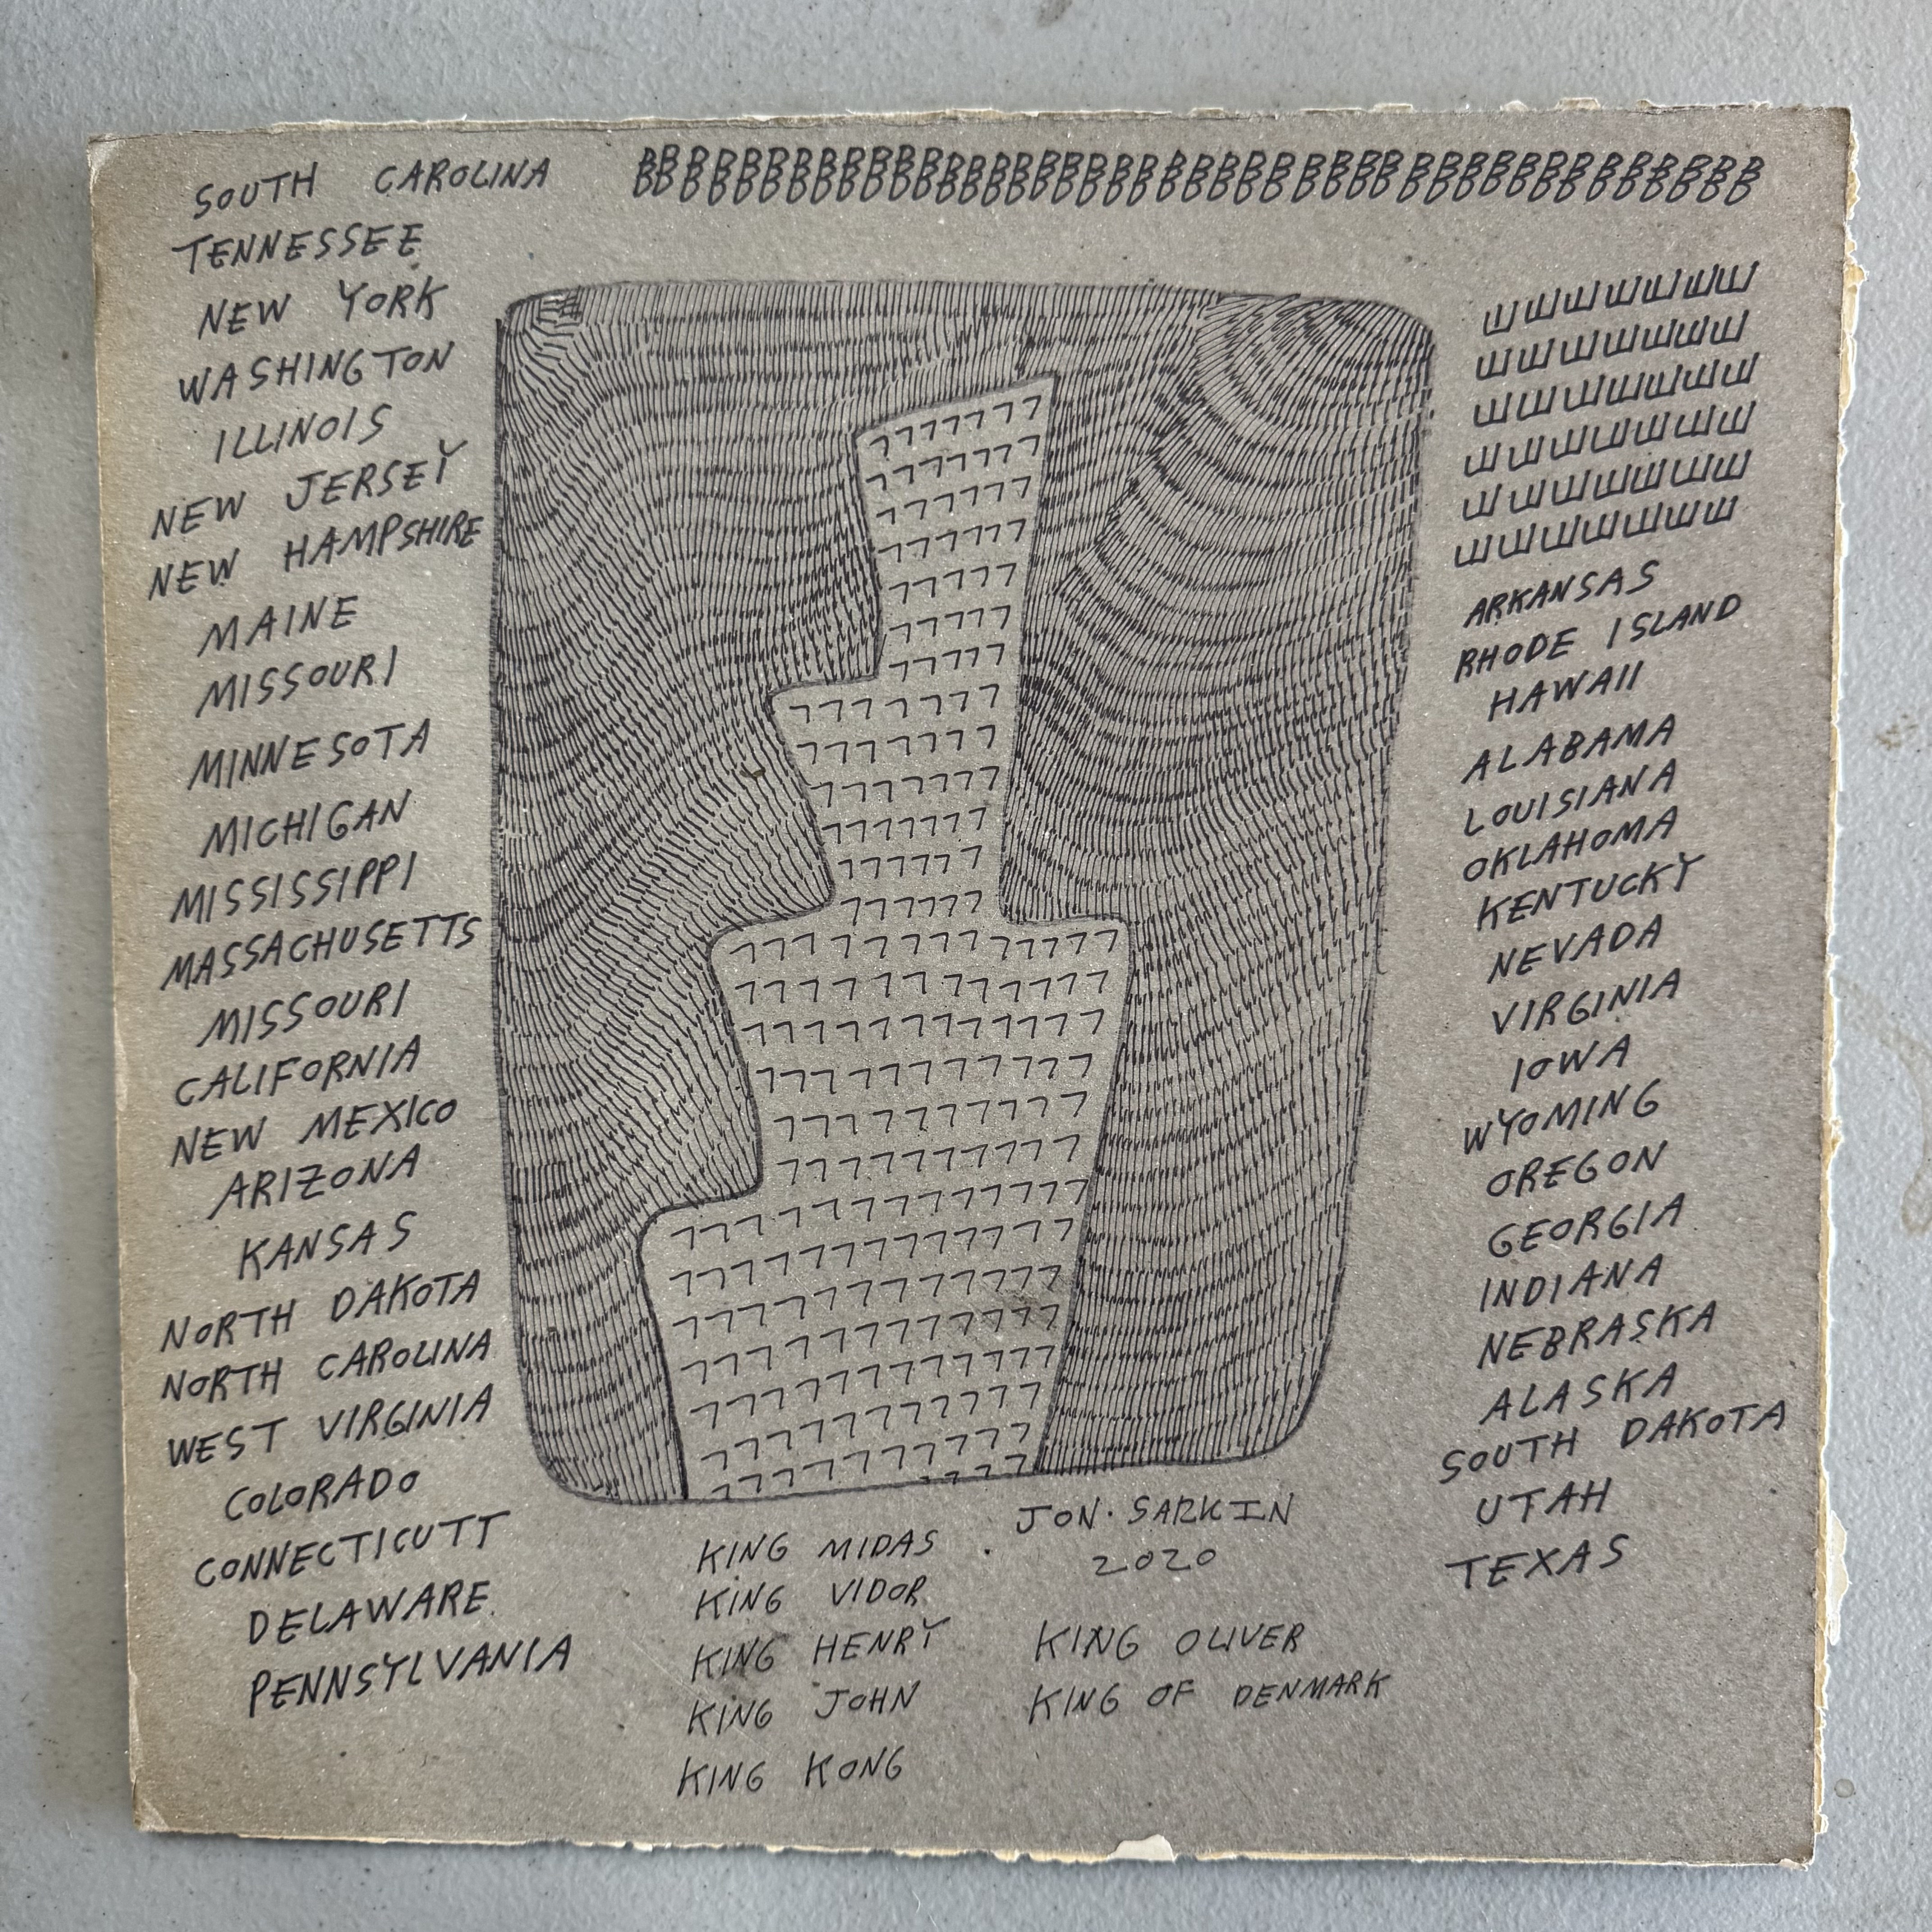 SOUTH CAROLINA
TENNESSEE
NEW YORK
WASHINGTON
ILLINOIS
NEW JERSEY
NEW HAMPSHIRE
MAINE
MISSOURI
MINNESOTA
MICHIGAN
MISSISSIPPI
MASSACHUSETTS
MISSOURI
CALIFORNIA
NEW MEXICO
ARIZONA
KANSAS
NORTH DAKOTA
NORTH CAROLINA
WEST VIRGINIA
COLORADO
CONNECTICUTT
DELAWARE
PENNSYLVANIA
ARKANSAS
RHODE ISLAND
HAWAII
ALABAMA
LOUISIANA
OKLAHOMA
KENTUCKY
NEVADA
VIRGINIA
IOWA
WYOMING
OREGON
GEORGIA
INDIANA
NEBRASKA
ALASKA
SOUTH DAKOTA
UTAH
TEXAS
KING MIDAS
KING VIDOR
KING HENRY
KING JOHN
KING KONG
JON. SARKIN
2020
KING OLIVER
KING OF DENMARK